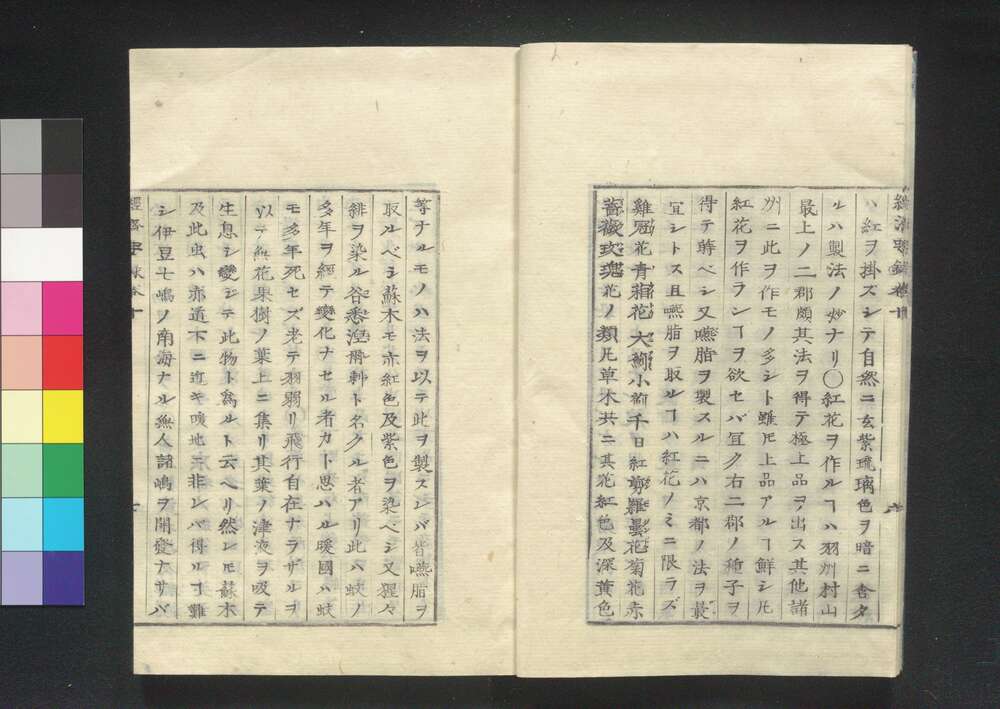 ハ紅ヲ掛ズシテ自然ニ玄紫琉璃色ヲ暗ニ含タ
ルハ製法ノ妙ナリ〇紅花ヲ作ルヿハ羽州村山
最上ノ二郡頗其法ヲ得テ極上品ヲ出ス其他諸
州ニ此ヲ作モノ多シト雖𪜈上品アルヿ鮮シ𪜈
紅花ヲ作ランヿヲ欲セバ宜ク右二郡ノ種子ヲ
得テ蒔ベシ又嚥脂ヲ製スルニハ京都ノ法ヲ最
宜シトス且嚥脂ヲ取ルヿハ紅花ノミニ限ラズ
雞冠花青箱花大薊小薊千日紅剪羅曇花菊花赤
薔薇玫瑰花ノ類凡草木共ニ其花紅色及深黄色
等ナルモノハ法ヲ以テ此ヲ製スレバ皆嚥脂ヲ
取ルベシ蘇木モ赤紅色及紫色ヲ染ベシ又猩々
緋ヲ染ル谷悉涅爾軵ト名クル者アリ此ハ蚊ノ
多年ヲ經テ變化ナセル者カト思ハル暖國ハ蚊
モ多年死セズ老テ羽弱リ飛行自在ナラザルヲ
以テ無花果樹ノ葉上ニ集リ其葉ノ津液ヲ吸テ
生息シ變ジテ此物ト爲ルト云ヘリ然レ𪜈蘇木
及此虫ハ赤道下ニ近キ暖地ニ非レバ得ルヿ難
シ伊豆七嶋ノ南海ナル無人諸嶋ヲ開發ナサバ